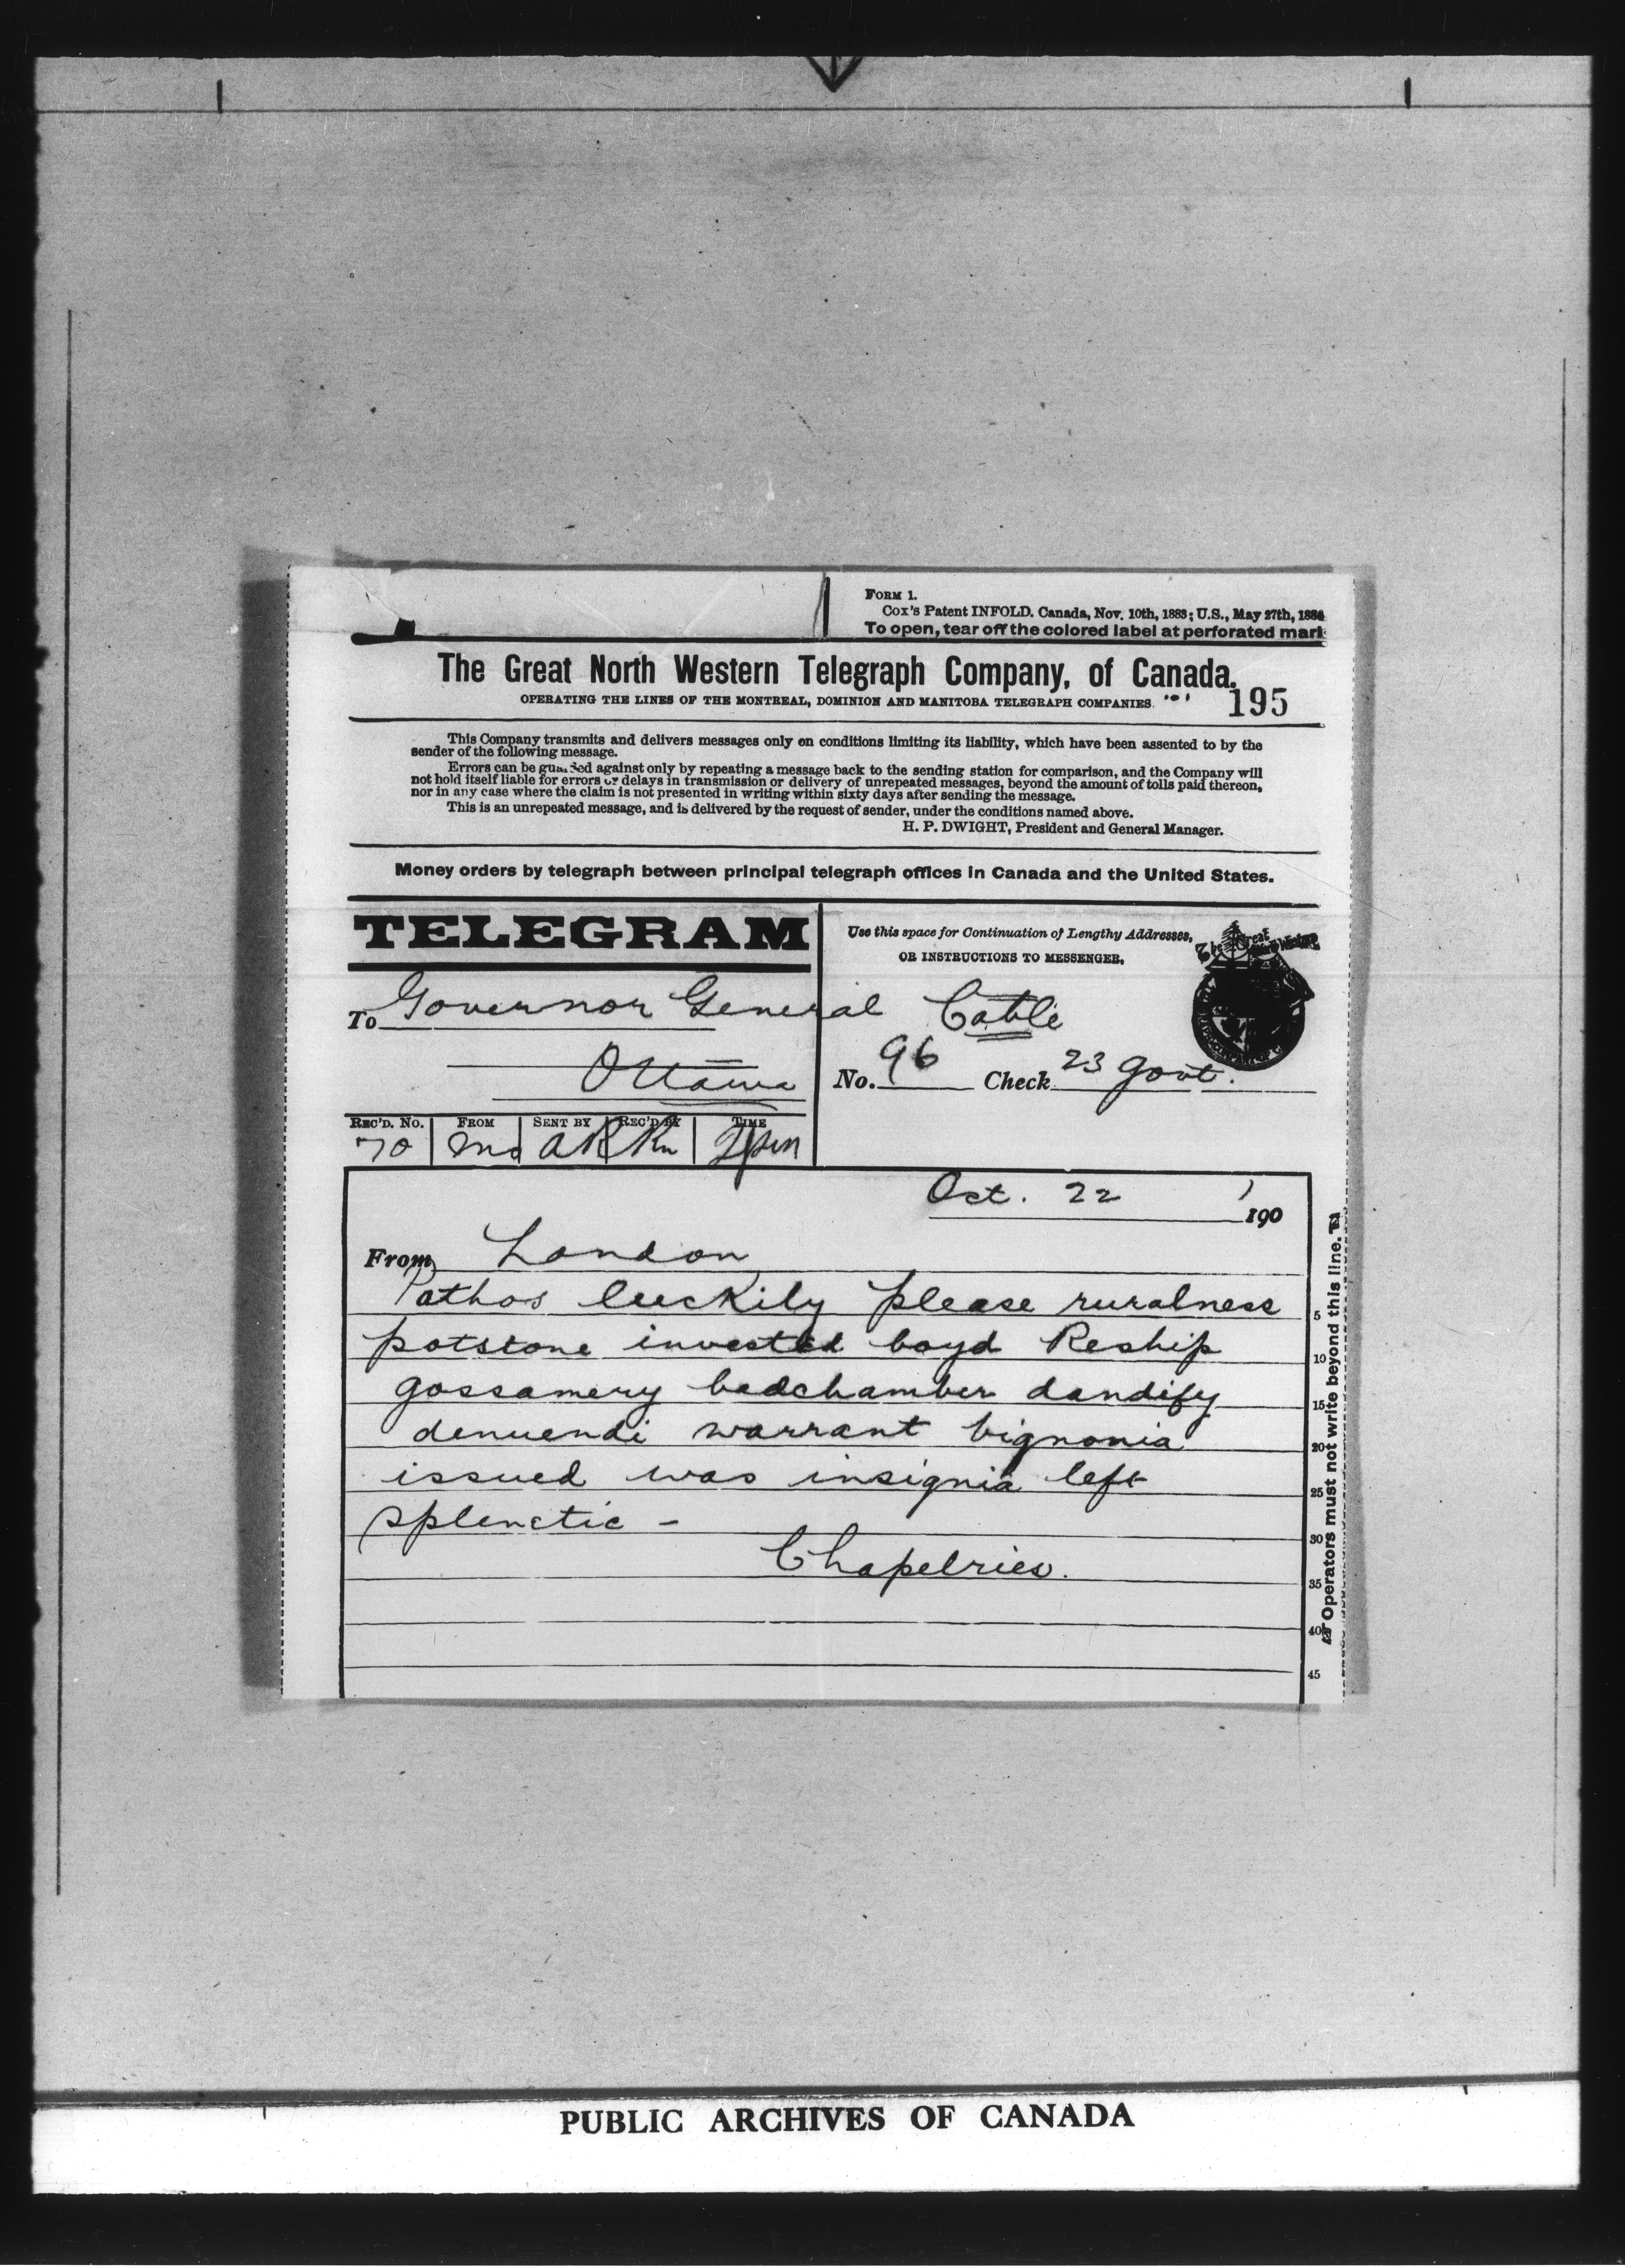 FORM 1.
Cox's Patent INFOLD. Canada, Nov. 10th, 1883; U.S., May 27th, 1884
To open, tear off the colored label at perforated mark
The Great North Western Telegraph Company, of Canada.
OPERATING THE LINES OF THE MONTREAL, DOMINION AND MANITOBA TELEGRAPH COMPANIES.
195
This Company transmits and delivers messages only on conditions limiting its liability, which have been assented to by the
sender of the following message.
Errors can be guarded against only by repeating a message back to the sending station for comparison, and the Company will
not hold itself liable for errors or delays in transmission or delivery of unrepeated messages, beyond the amount of tolls paid thereon,
nor in any case where the claim is not presented in writing within sixty days after sending the message.
This is an unrepeated message, and is delivered by the request of sender, under the conditions named above.
H. P. DWIGHT, President and General Manager.
Money orders by telegraph between principal telegraph offices in Canada and the United States.
TELEGRAM
Use this space for Continuation of Lengthy Addresses,
OR INSTRUCTIONS TO MESSENGER.
The Great North Western
To Governor General Cable
Ottawa
No. 96 Check 23 Govt.
REC'D. No. FROM SENT BY REC'D BY TIME
70
Oct. 22 1901
From London
Pathos luckily please ruralness
potstone invested boyd Reship
gossamery bedchamber dandify
denuendi warrant bignonia
issued was insignia left
splenetic -
Chapelries.
5
10
15
20
25
30
35
40
45
Operators must not write beyond this line.
PUBLIC ARCHIVES OF CANADA